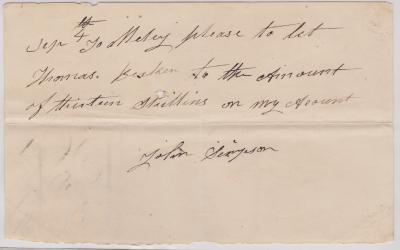 Sep 4th To Meby please to let
Thomas. to the Amount
of thirteen Shillins on my Acount
John Simpson